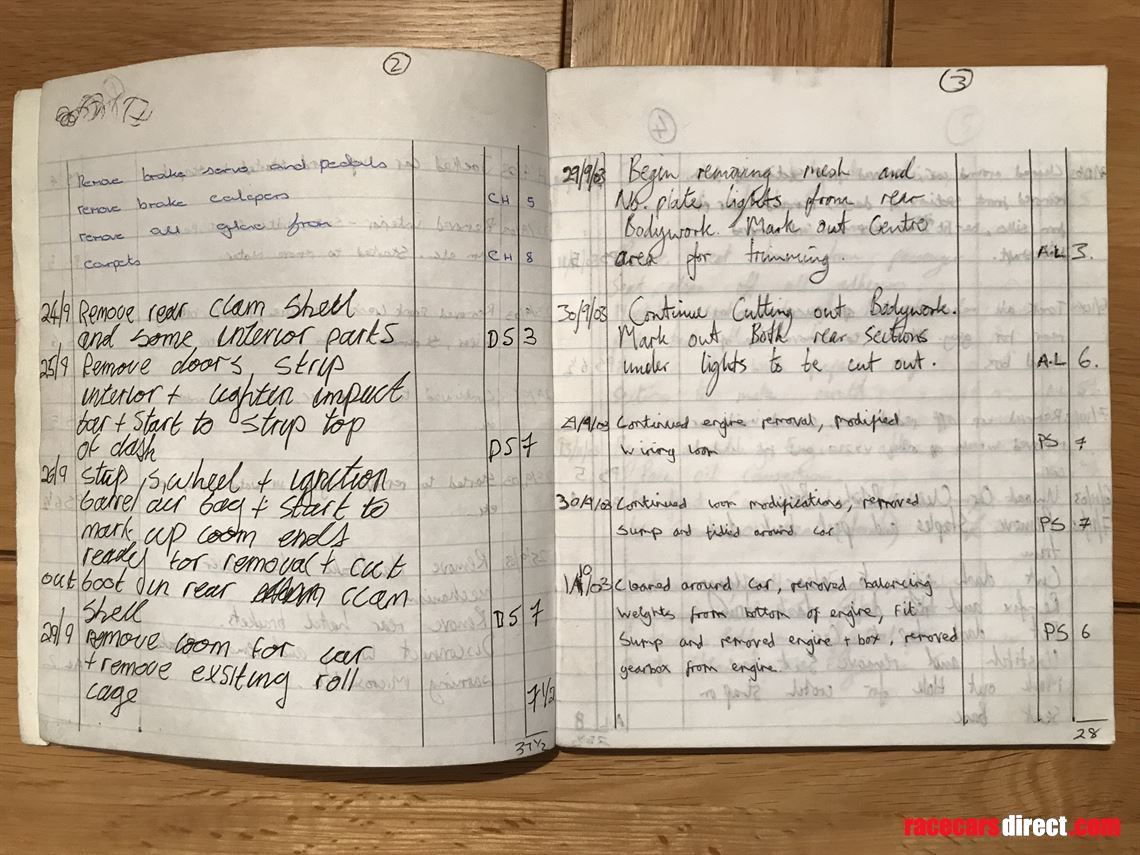 2
Remove brake servo and pedals
remove brake calapers CH 5
remove all glue from
carpets CH 8
24/9 Remove rear clam shell
and some interior parts DS 3
25/9 Remove doors strip
interior + lighten impact
bar + start to strip top
of dash DS 7
26/9 strip S,wheel + ignition
barrel air bag + start to
mark up loom ends
ready for removal + cut
out boot in rear clam
shell DS 7
29/9 Remove loom for car
+ remove exsiting roll
cage 7 1/2
37 1/2
3
29/9/03 Begin removing mesh and
No. plate lights from rear
Bodywork. Mark out Centre
area for trimming. A.L 3.
30/9/03 Continue Cutting out Bodywork.
Mark out Both rear sections
under lights to be cut out. A.L 6.
29/9/03 Continued engine removal, modified
wiring loom PS 7
30/9/03 Continued loom modifications, removed
Sump and tidied around car PS 7
1/10/03 Cleared around car, removed balancing
weights from bottom of engine, fit
Sump and removed engine + box, removed PS 6
gearbox from engine.
28
racecarsdirect.com